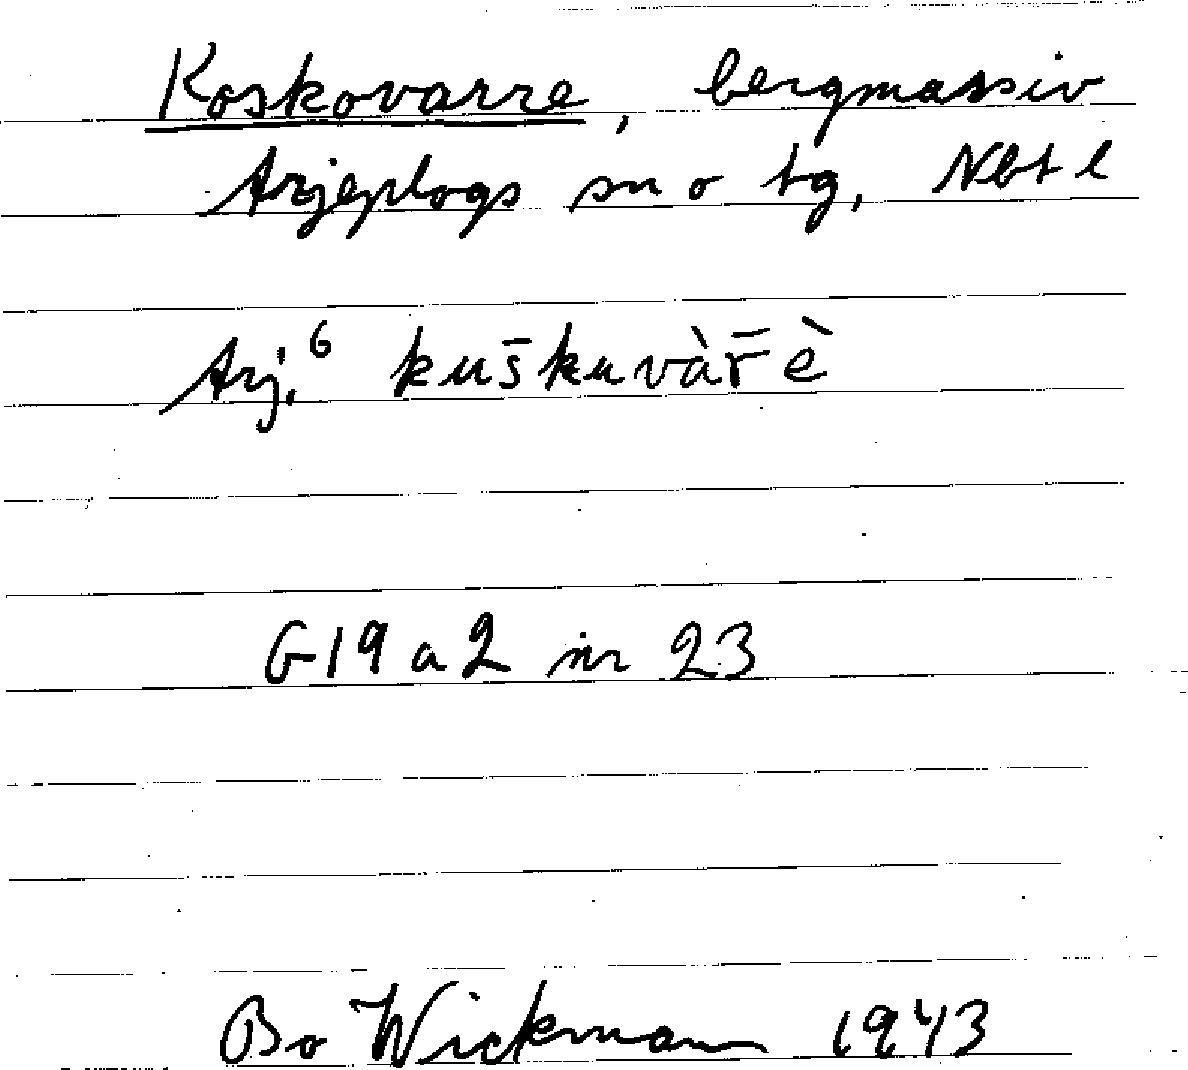 Koskovarre, bergmassiv
Arjeplogs sn o tg, Nbt l
Arj.⁶ kus̄kuvàr̄è
G19a2 nr 23
Bo Wickman 1943